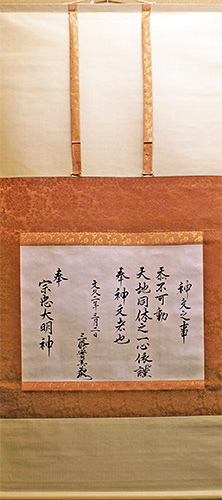 神文之事
泰不可動
天地同体之一心依謹
奉神文者也
文久二年三月一日
三條實美
奉
宗忠大明神